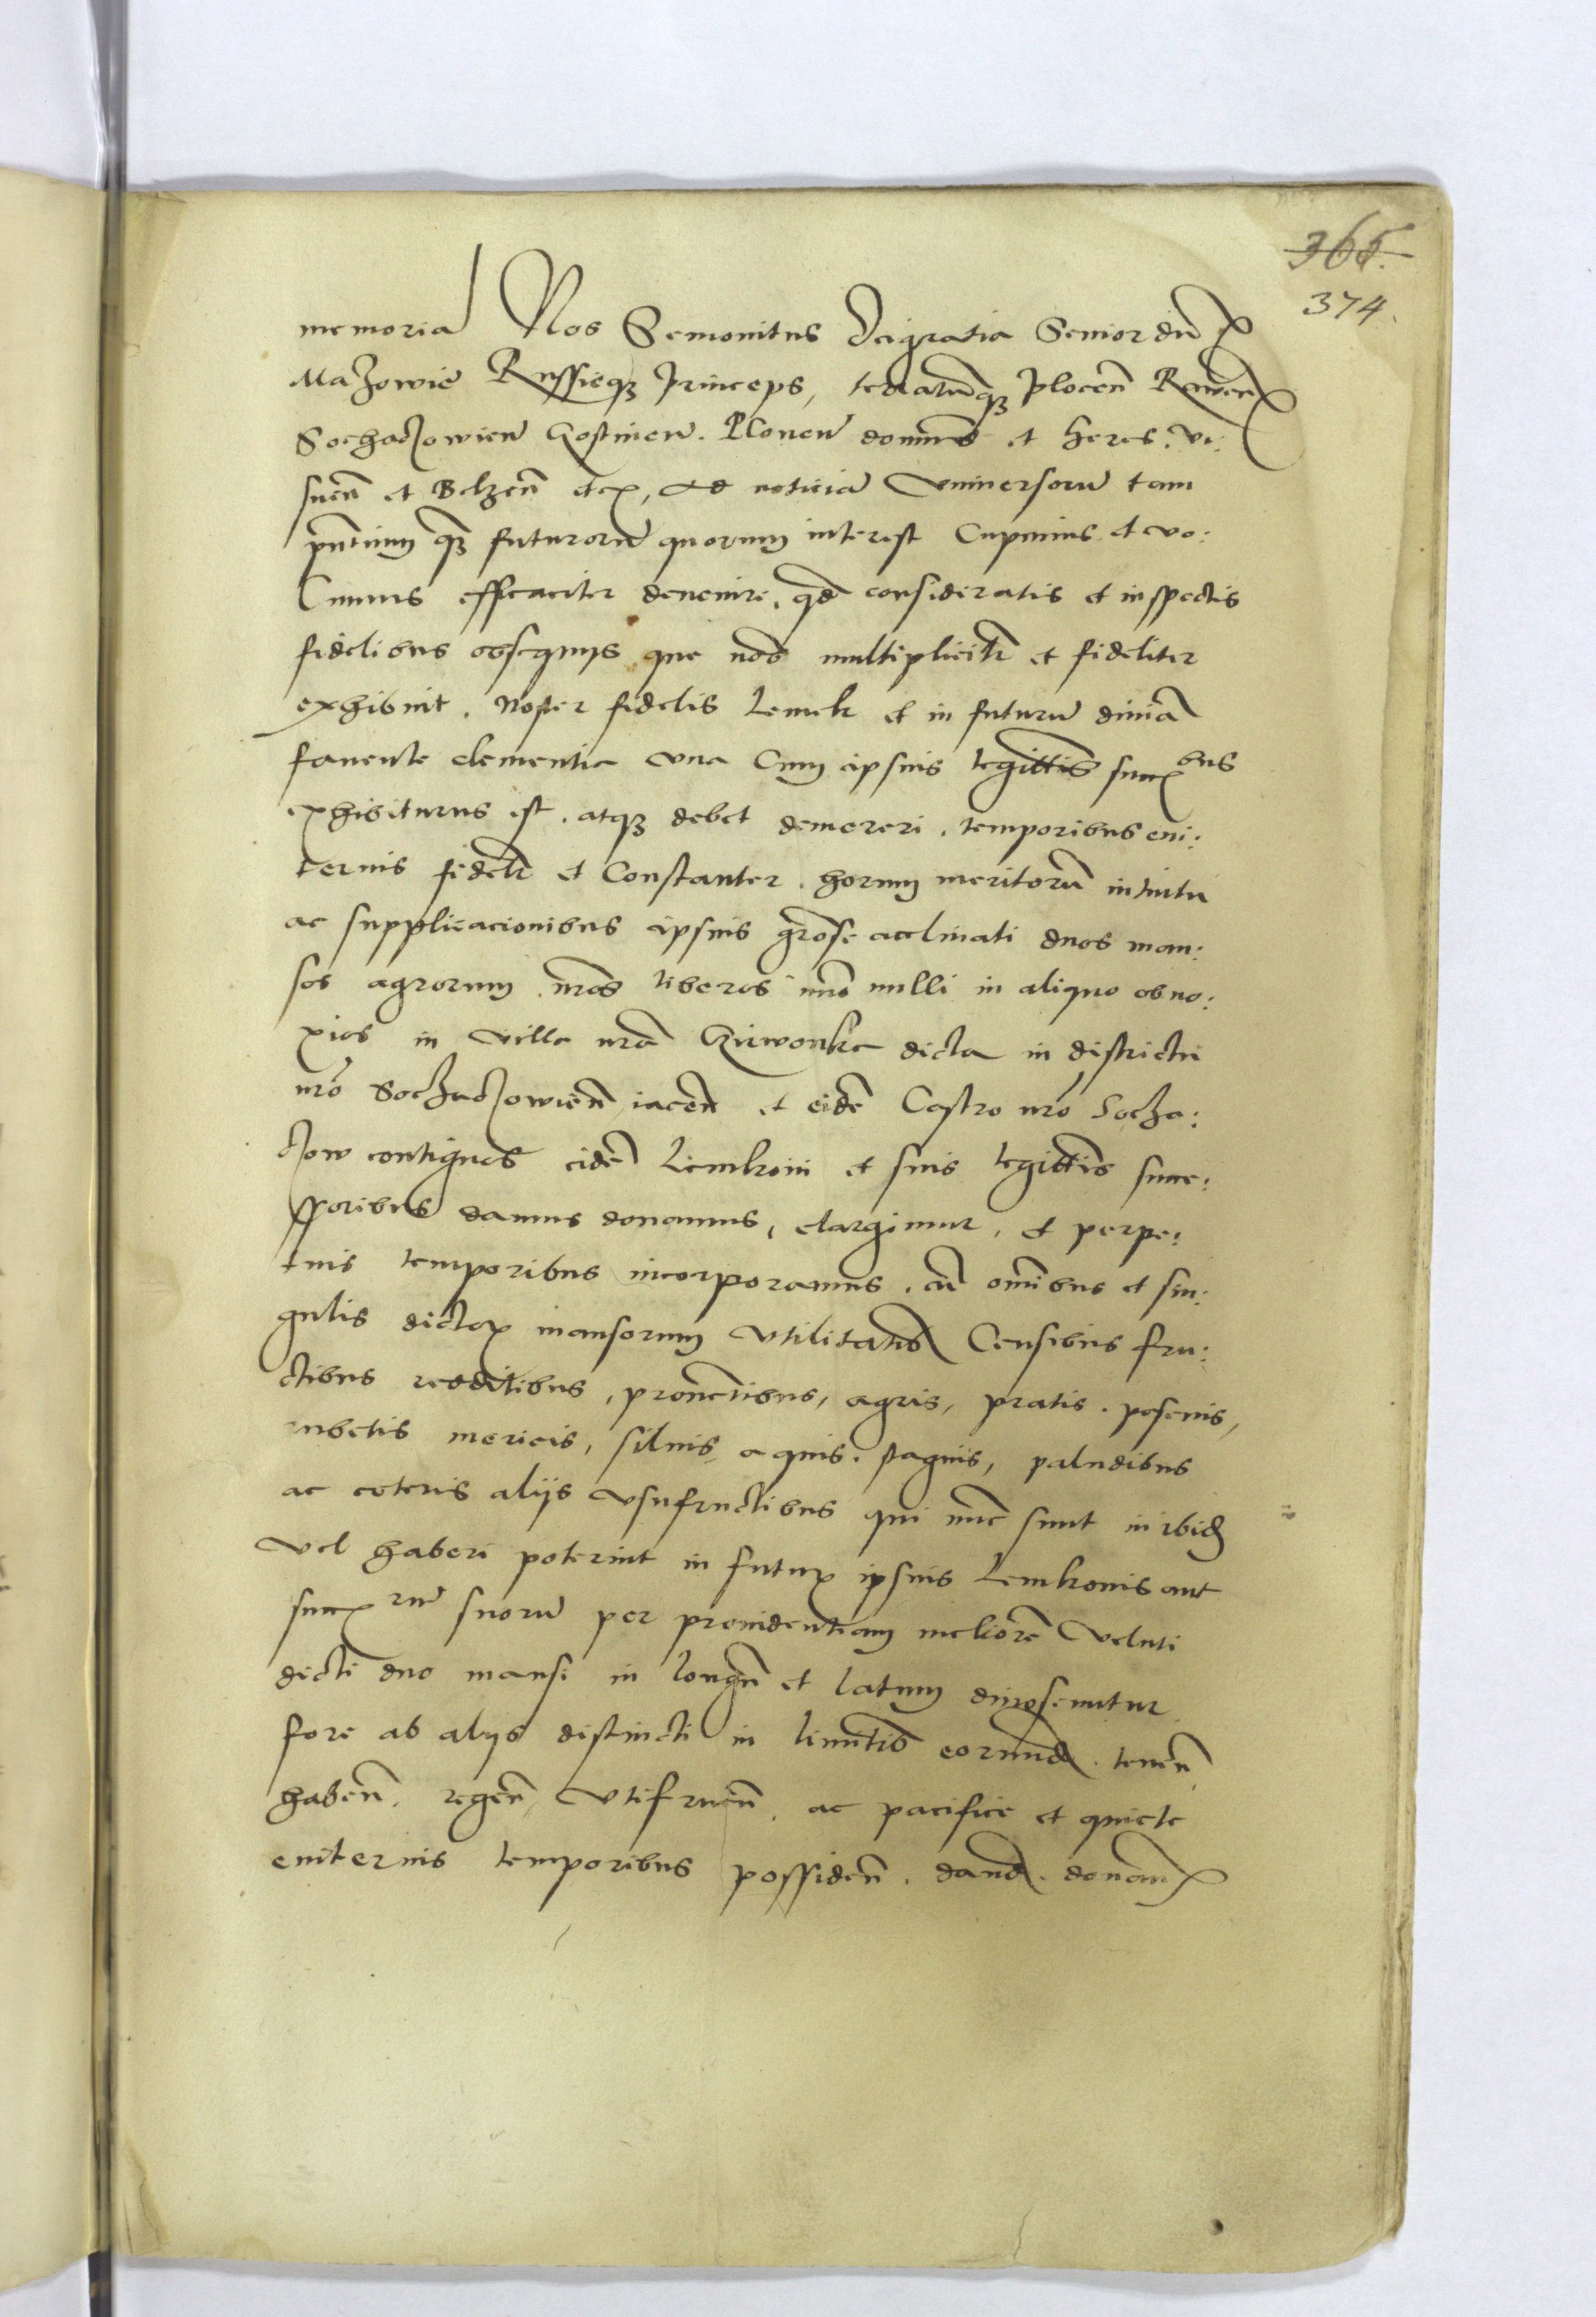 365.
374.
memoria Nos Semovitus Dei gratia Senior dux
Mazowie Russieqz princeps, terrarumqz plocen Rawen
Sochaczowien Gostinen. Plonen dominus et heres. Vi:
snen et Belzen etc, Ad noticia Vniversoru tam
pntium qz futuroru quorum interest Cupimus et vo:
lumus efficaciter devenire, qd consideratis et inspectis
fidelibus obsequijs que nob multiplicitr et fideliter
exhibuit. Noster fidelis Lemek et in futuru divina
favente clementia vna Cum ipsius legittis succ bus
exhibiturus est. atqz debet demereri. temporibus evi:
ternis fidelr et Constanter. horum meritoru intuitu
ac supplicacionibus ipsius grose acclinati duos man:
sos agrorum nros liberos imo nulli in aliquo obno:
xios in villa nra dicta in districtu
nro Sochaczowien iacen et eide Castro nro Socha:
czow contiguos eide Lemkoni et suis legittis succe:
ssoribus damus donamus, elargimur, et perpe:
tuis temporibus incorporamus. cu omibus et sin:
gulis dictor mansorum vtilitatib Censibus fru:
ctibus redditibus, proventibus, agris, pratis. pascuis,
rubetis mericis, silvis, aquis. stagnis, paludibus
ac ceteris alijs vsufructibus qui nunc sunt inibid
vel haberi poterint in futur ipsius Lemkonis aut
succ ru suoru per providentiam meliore veluti
dicti duo mansi in longu et latum dinoscuntur
fore ab alijs distincti in limitib eorund. tenen
haben. regen, vtifruen. ac pacifice et quiete
eviternis temporibus possiden. dand. donan